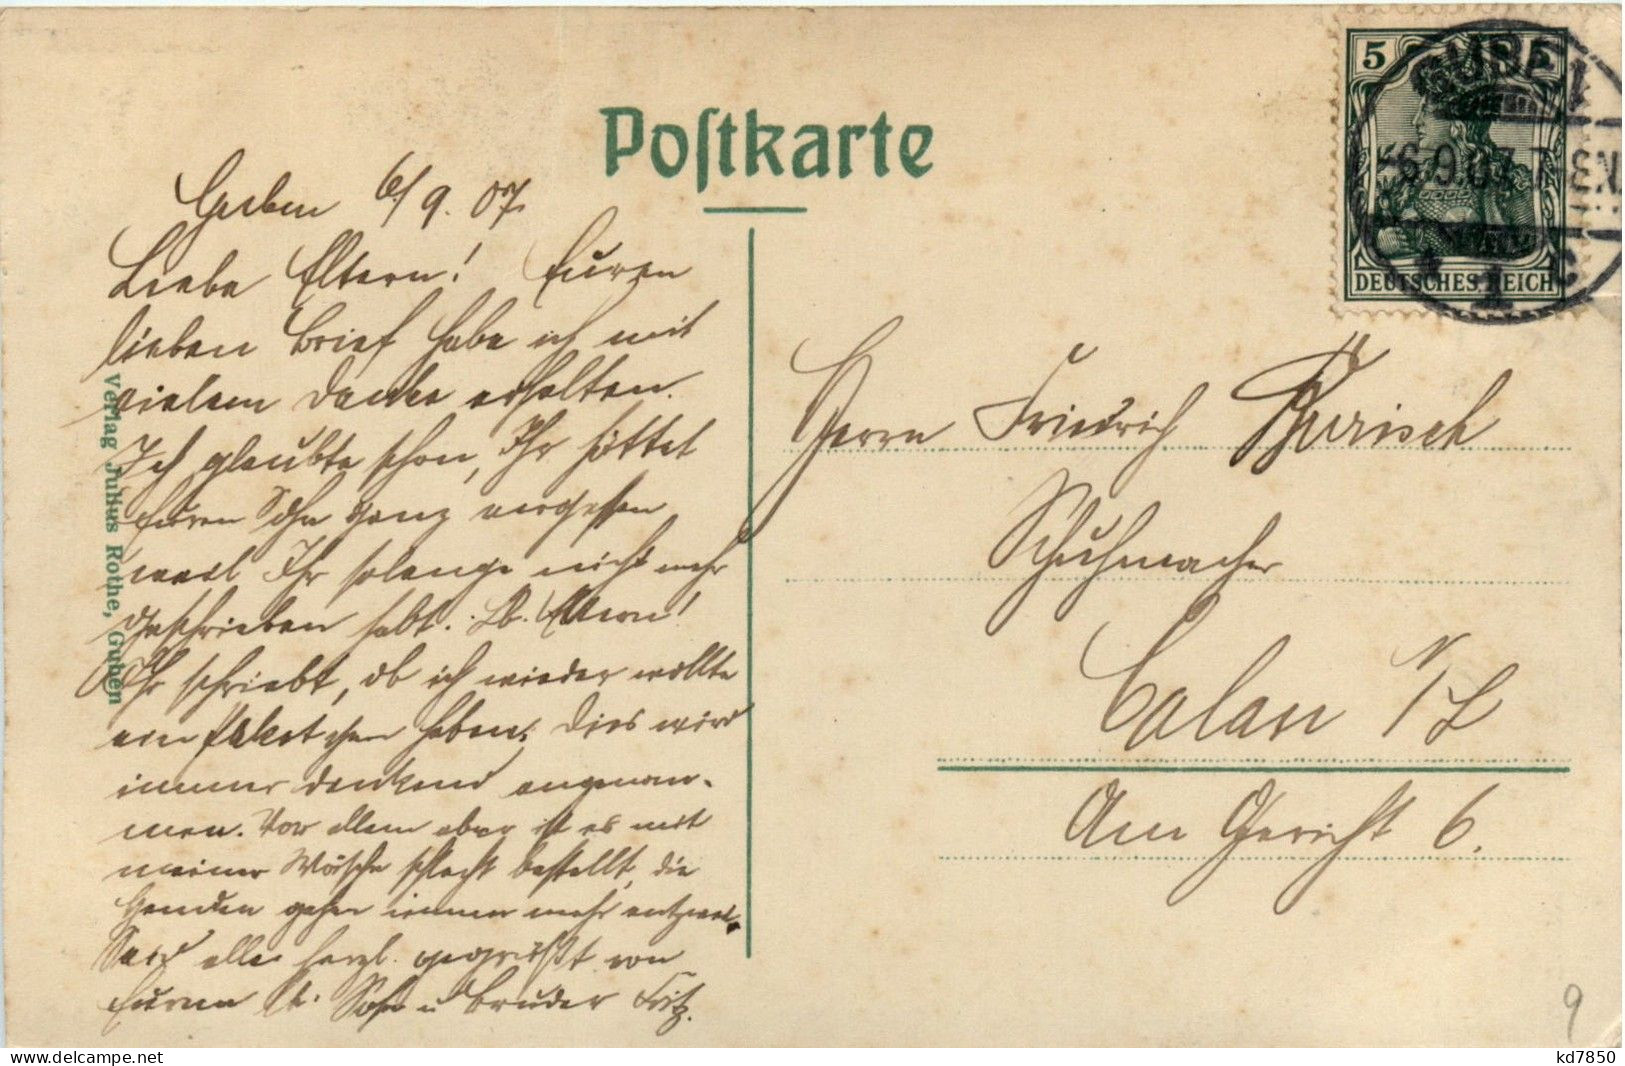 Postkarte
Guben 6/9. 07.
Liebe Eltern! Euren
lieben Brief habe ich mit
vielem Danke erhalten.
Ich glaubte schon, Ihr hättet
Euren Sohn ganz vergessen
weil Ihr solange nicht mehr
geschrieben habt. Lb. Eltern!
Ihr schriebt, ob ich wieder wollte
ein Paketchen haben. Dies wird
immer dankend angenom-
men. Vor allem aber ist es mit
meiner Wäsche schlecht bestellt, die
Hemden gehen immer mehr entzwei.
Seid alle herzl. gegrüßt von
Eurem lb. Sohn u Bruder Fritz.
Verlag Julius Rothe, Guben
5 5
DEUTSCHES REICH
GUBEN
-6.9.07. 7-8N.
1
Herrn Friedrich
Schuhmacher
Calau N/L
Am Gericht 6.
9
kd7850